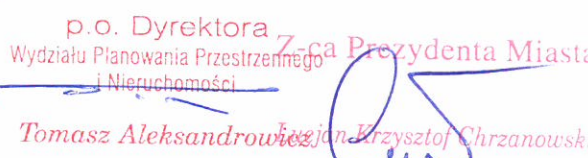 p.o. Dyrektora
Wydziału Planowania Przestrzennego
i Nieruchomości
Tomasz Aleksandrowicz
Z-ca Prezydenta Miasta
Krzysztof Chrzanowsk